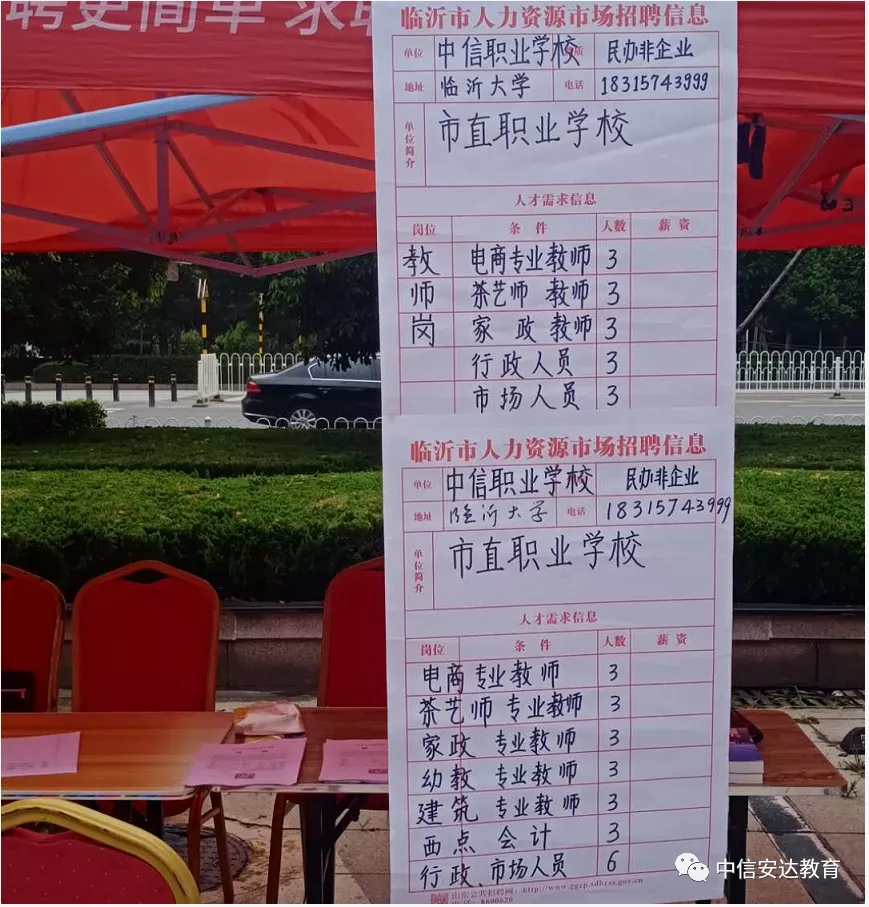 聘更简单 求职
临沂市人力资源市场招聘信息
单位 中信职业学校 民办非企业
地址 临沂大学 电话 18315743999
单位简介 市直职业学校
人才需求信息
岗位 条件 人数 薪资
教 电商专业教师 3
师 茶艺师 教师 3
岗 家政 教师 3
行政人员 3
市场人员 3
临沂市人力资源市场招聘信息
单位 中信职业学校 民办非企业
地址 临沂大学 电话 18315743999
单位简介 市直职业学校
人才需求信息
岗位 条件 人数 薪资
电商专业教师 3
茶艺师 专业教师 3
家政 专业教师 3
幼教 专业教师 3
建筑 专业教师 3
西点 会计 3
行政、市场人员 6
山东公共招聘网：http://www.ggzp.sdhrss.gov.cn
电话：8600620
中信安达教育